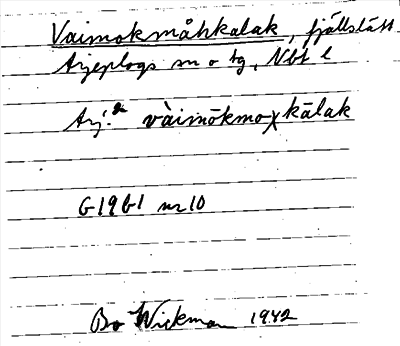 Vaimokmåhkalak, fjällslätt
Arjeplogs sn o tg, Nbt l
Arj. vàimōkmoχkālak
G19b1 nr 10
Bo Wickman 1942